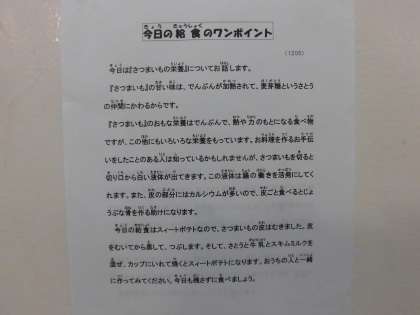 今日の給食のワンポイント
(1205)
今日は『さつまいもの栄養』についてお話します。
『さつまいも』の甘い味は、でんぷんが加熱されて、麦芽糖というさとう
の仲間にかわるからです。
『さつまいも』のおもな栄養はでんぷんで、熱や力のもとになる食べ物
ですが、この他にもいろいろな栄養をもっています。お料理を作るお手伝
いをしたことのある人は知っているかもしれませんが、さつまいもを切ると
切り口から白い液体が出てきます。この液体は腸の働きを活発にしてく
れます。また、皮の部分にはカルシウムが多いので、皮ごと食べるとじょ
うぶな骨を作る助けになります。
今日の給食はスィートポテトなので、さつまいもの皮はむきました。皮
をむいてから蒸して、つぶします。そして、さとうと牛乳とスキムミルクを
混ぜ、カップにいれて焼くとスィートポテトになります。おうちの人と一緒
に作ってみてください。今日も残さずに食べましょう。